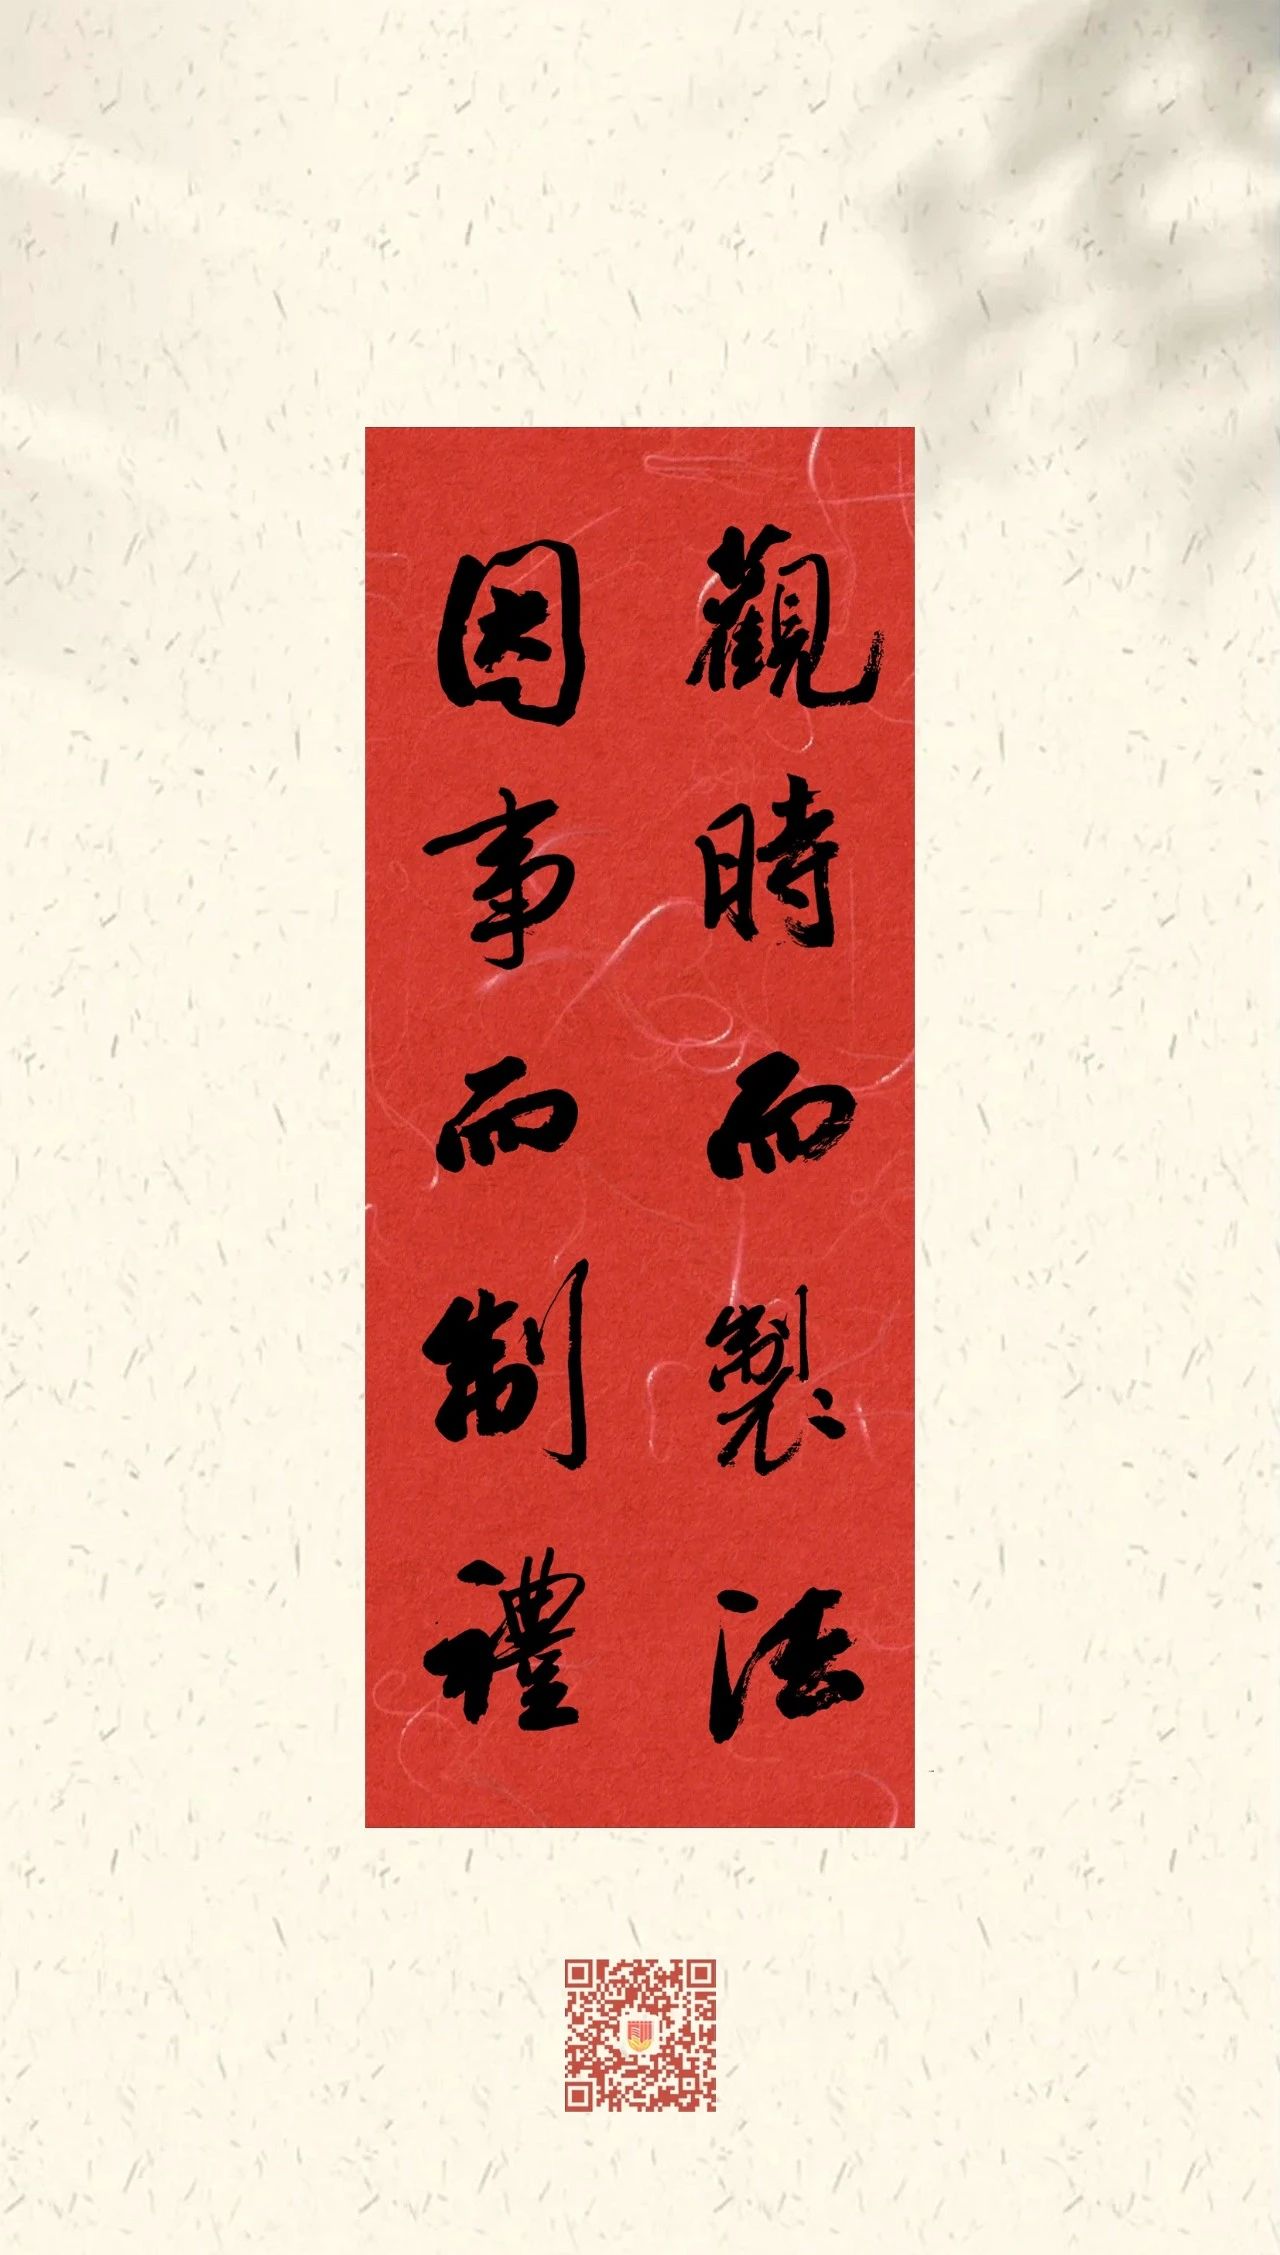 觀時而製法
因事而制禮